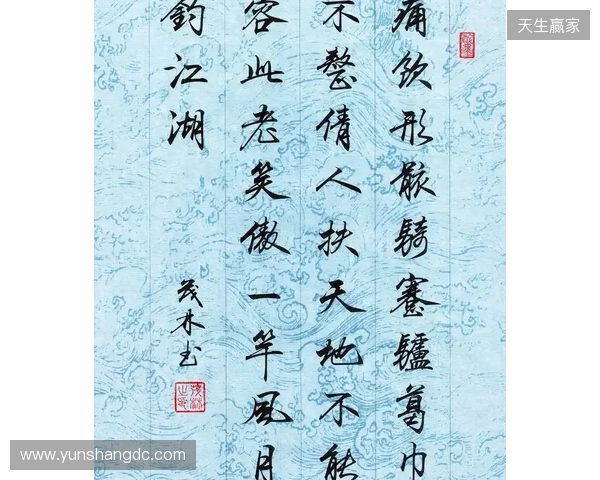 天生赢家
痛飲形骸騎蹇驢葛巾
不整倩人扶天地不能
容此老笑傲一竿風月
釣江湖
茂林书
www.yunshangdc.com